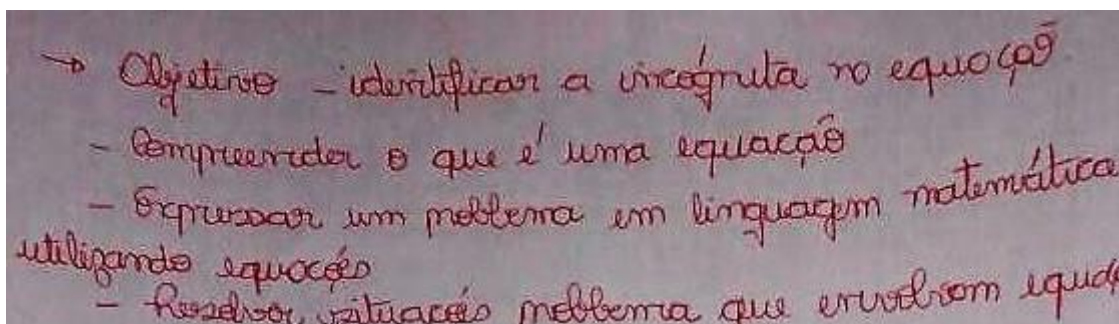 → Objetivo - identificar a incógnita no equoção
- Compreender o que é uma equação
- Expressar um problema em linguagem matemática
utilizando equoções
- Resolver situacões problema que envolvem equaç